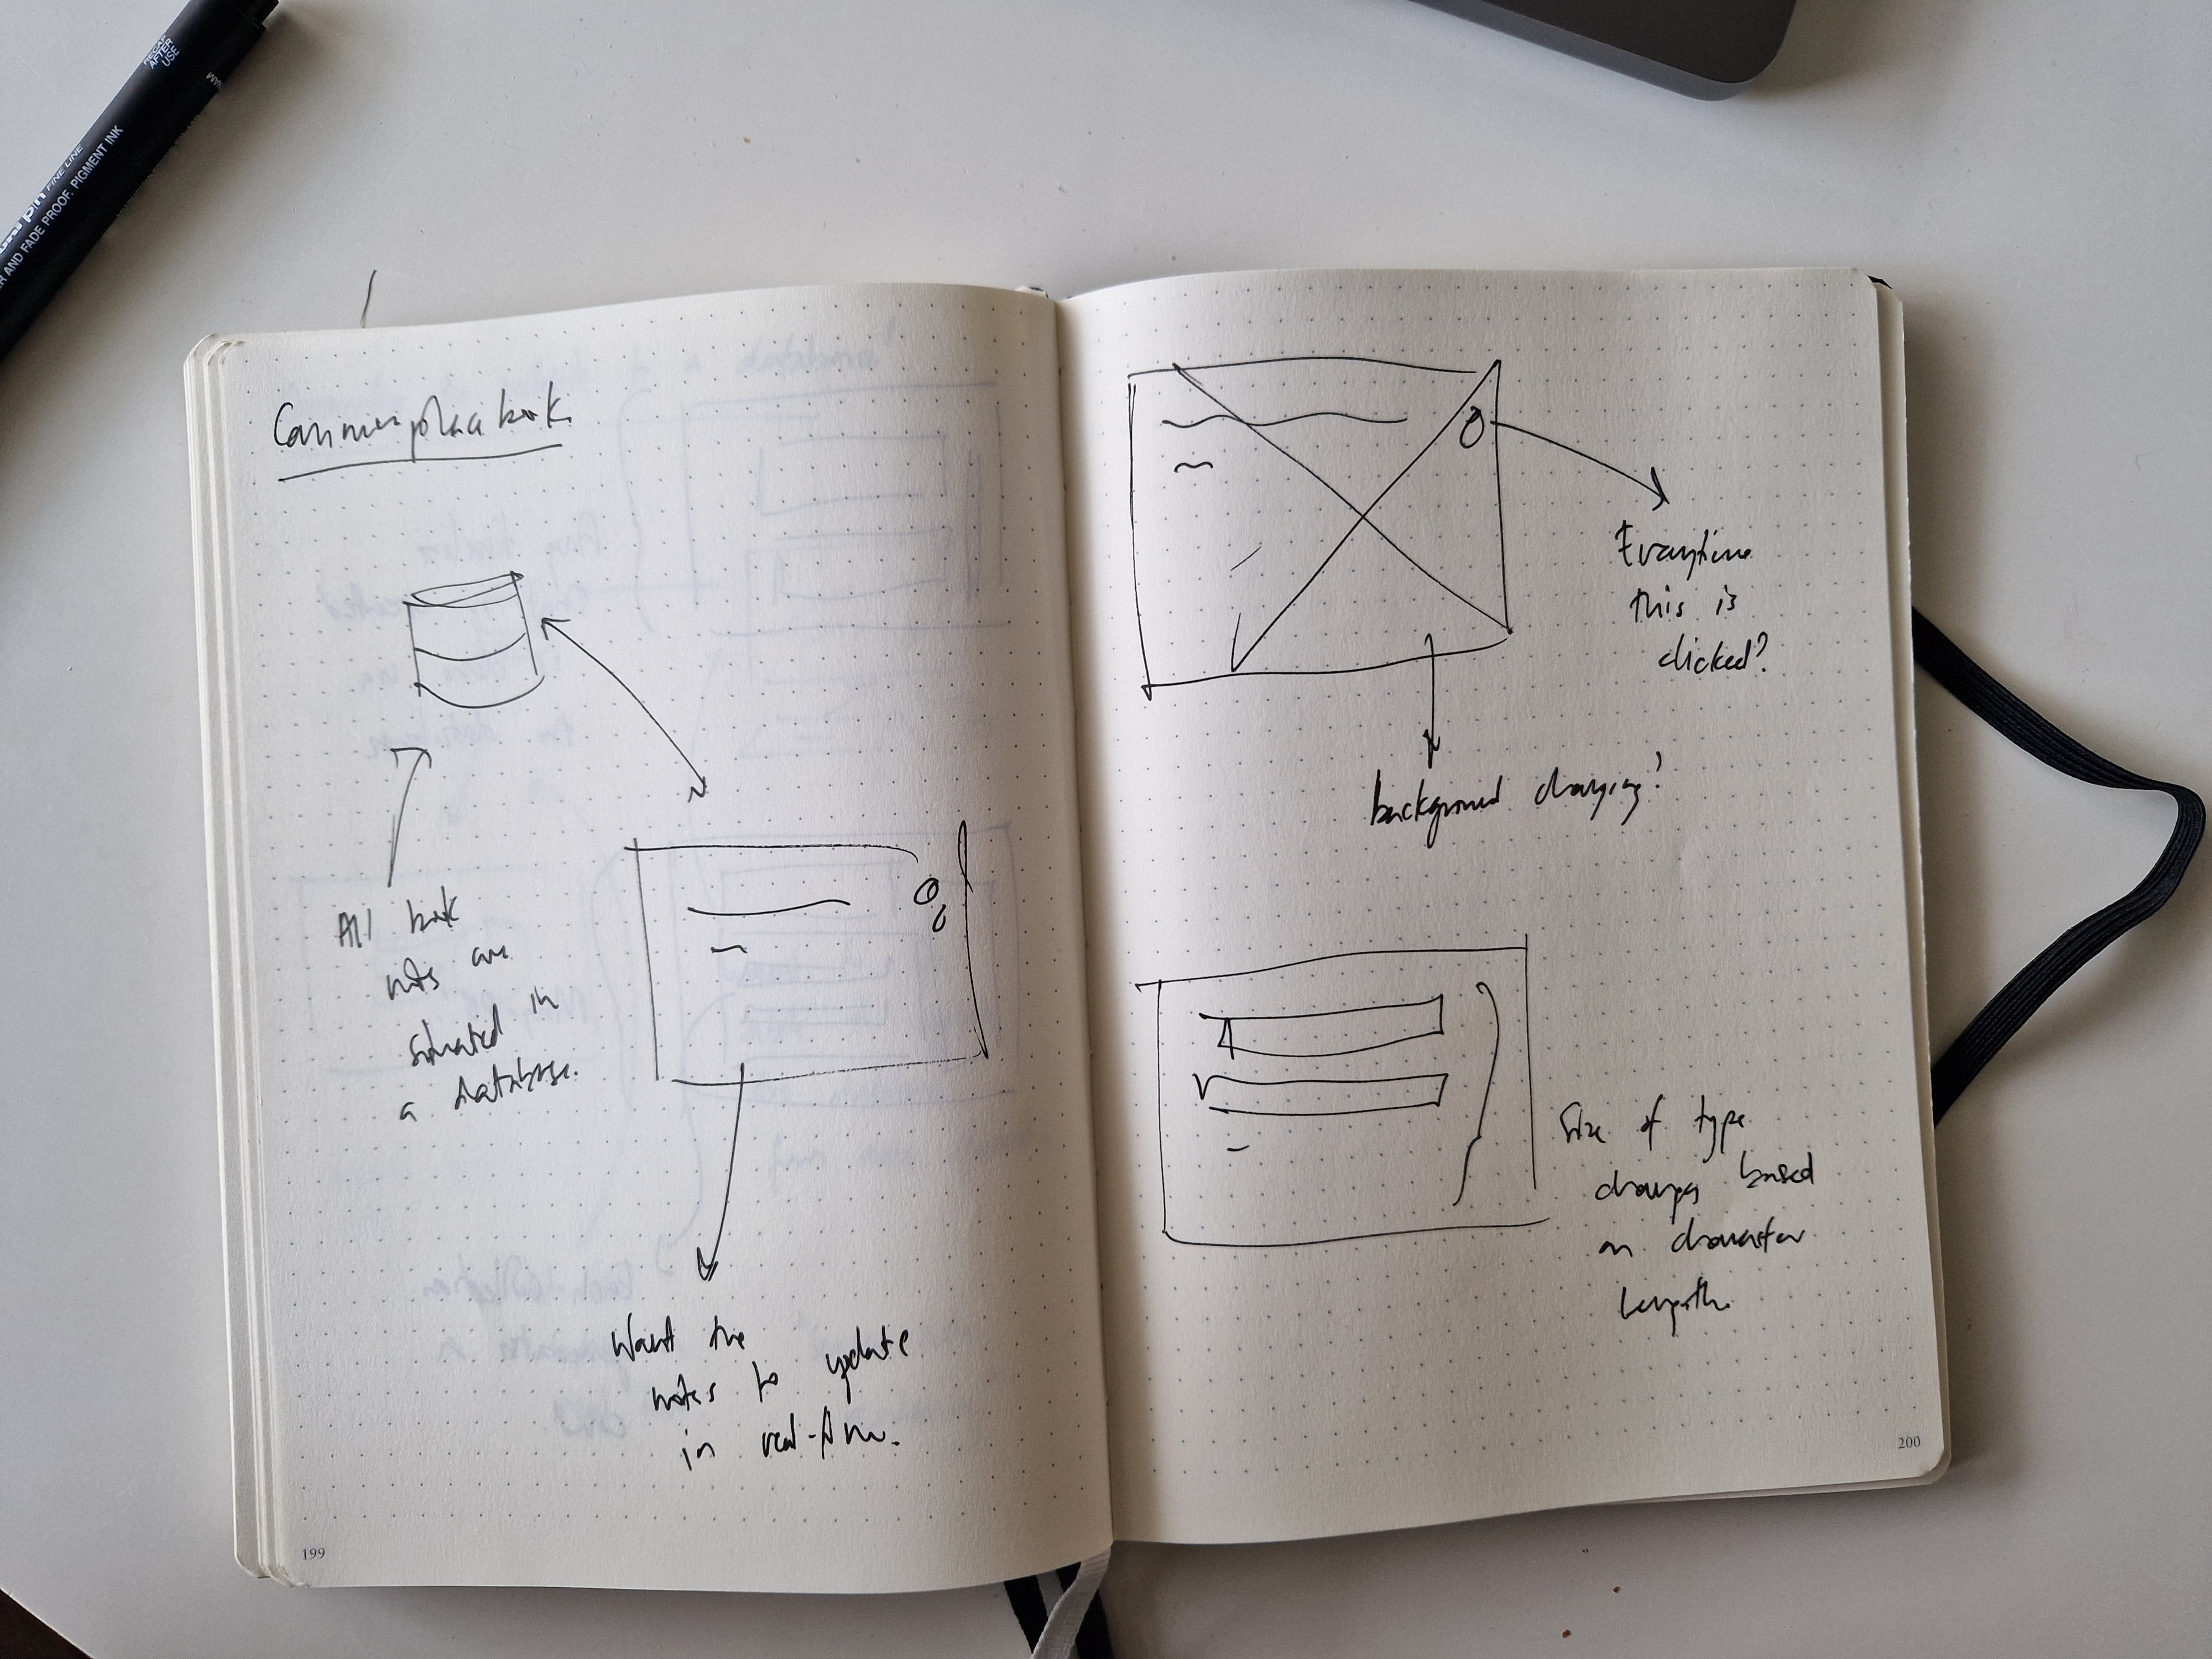 RECAP
AFTER
USE
pin FINE LINE
ER AND FADE PROOF. PIGMENT INK
Commonplace book
All book
notes are
situated in
a database.
Want the
notes to update
in real-time.
199
Everytime
this is
clicked?
background changing?
Size of type
changes based
on character
length.
200